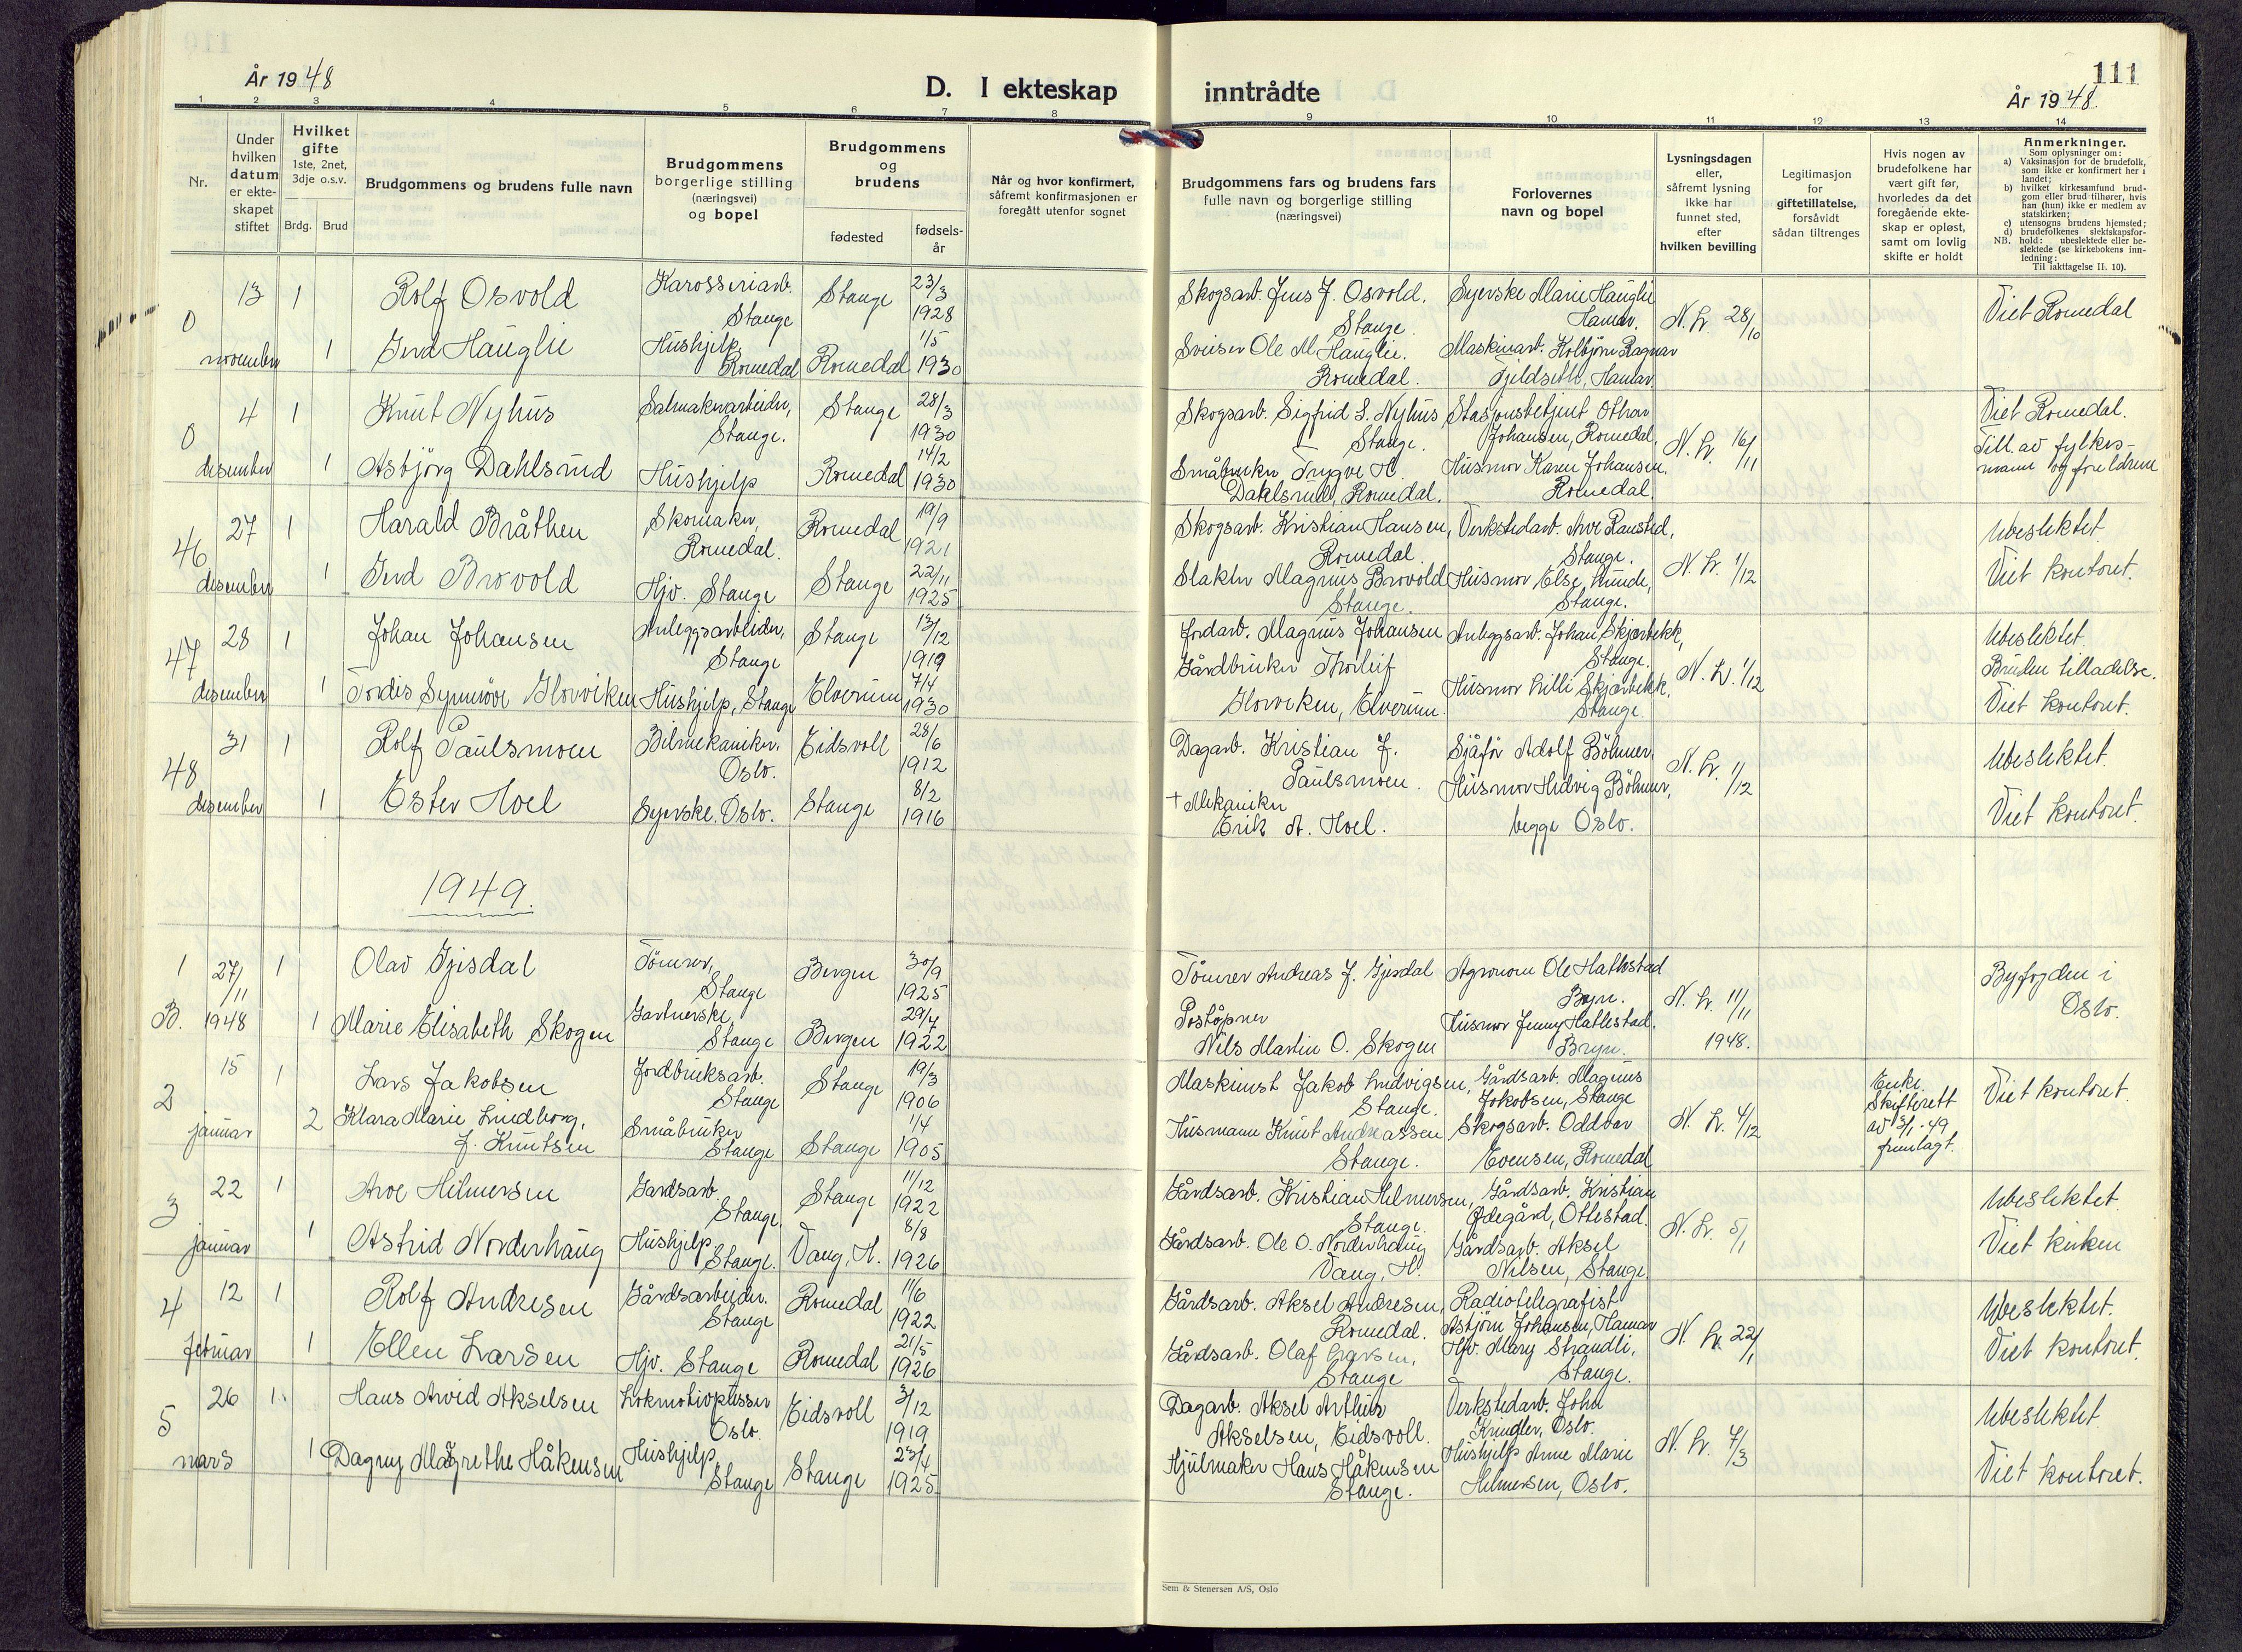 111
År 1948
D. I ekteskap inntrådte
År 1948.
1 2 3 4 5 6 7 8 9 10 11 12 13 14
Nr.
Under hvilken datum er ekteskapet stiftet
Hvilket gifte
1ste, 2net, 3dje o.s.v.
Brdg. Brud
Brudgommens og brudens fulle navn
Brudgommens borgerlige stilling (næringsvei) og bopel
Brudgommens og brudens
fødested
fødselsår
Når og hvor konfirmert, såfremt konfirmasjonen er foregått utenfor sognet
Brudgommens fars og brudens fars fulle navn og borgerlige stilling (næringsvei)
Forlovernes navn og bopel
Lysningsdagen eller, såfremt lysning ikke har funnet sted, efter hvilken bevilling
Legitimasjon for giftetillatelse, forsåvidt sådan tiltrenges
Hvis nogen av brudefolkene har vært gift før, hvorledes da det foregående ekteskap er opløst, samt om lovlig skifte er holdt
Anmerkninger.
Som oplysninger om:
a) Vaksinasjon for de brudefolk, som ikke er konfirmert her i landet;
b) hvilket kirkesamfund brudgom eller brud tilhører, hvis han (hun) ikke er medlem av statskirken;
c) utensogns brudens hjemsted;
d) brudefolkenes slektskapsforhold: ubeslektede eller beslektede (se kirkebokens innledning:
NB.
Til iakttagelse II. 10).
0 13 november 1 Rolf Osvold Karosseriarb. Stange Stange 23/3 1928 Skogsarb. Jens J. Osvold. Stange. Syerske Marie Hauglie Hamar. N. Lv. 28/10 Viet Romedal
1 Gerd Hauglie Hushjelp, Romedal Romedal 1/5 1930 Sveiser Ole M. Hauglie. Romedal. Maskinarb. Kolbjørn Ragnar Fjeldseth, Hamar
0 4 desember 1 Knut Nyhus Salmakerarbeider, Stange. Stange 28/3 1930 Skogsarb. Sigfrid S. Nyhus Stange. Stasjonsbetjent Othar Johansen, Romedal. N. Lv. 16/11 Viet Romedal.
1 Asbjørg Dahlsrud Hushjelp Romedal 14/2 1930 Småbruker Trygve H. Dahlsrud, Romedal. Husmor Karen Johansen. Romedal. Till. av fylkesmann og foreldrene
46 27 desember 1 Harald Bråthen Skomaker, Romedal. Romedal 19/9 1921 Skogsarb. Kristian Hansen, Romedal. Verkstedarb. Arve Ransted, Stange. N. Lv. 1/12 Ubeslektet
1 Gerd Brovold Hjv. Stange Stange 22/11 1925 Slakter Magnus Brovold Stange. Husmor Else Lunde, Stange. Viet kontoret.
47 28 desember 1 Johan Johansen Anleggsarbeider, Stange Stange 13/12 1919 Jordarb. Magnus Johansen Anleggsarb. Johan Skjærbekk, Stange. N. Lv. 1/12 Ubeslektet
1 Tordis Synnöve Glorviken Hushjelp, Stange Elverum 7/4 1930 Gårdbruker Thorleif Glorviken, Elverum. Husmor Lilli Skjærbekk. Stange. Bruden tilladelse. Viet kontoret.
48 31 desember 1 Rolf Paulsmoen Bilmekaniker, Oslo. Eidsvoll 28/6 1912 Dagarb. Kristian J. Paulsmoen. Sjåför Adolf Böhmer. N. Lv. 1/12 Ubeslektet.
1 Ester Hoel Syerske. Oslo. Stange 8/2 1916 + Mekaniker Erik A. Hoel. Husmor Hedvig Böhmer, begge Oslo. Viet kontoret.
1949.
1 B. 27/11 1948 1 Olav Gjesdal Tömrer, Stange Bergen 30/9 1925 Tömrer Andreas J. Gjesdal Agronom Ole Hatlestad Bryn. N. Lv. 11/11 1948. Byfogden i Oslo.
1 Marie Elisabeth Skogen Gartnerske, Stange Bergen 29/4 1922 Poståpner Nils Martin O. Skogen Husmor Jenny Hatlestad. Bryn.
2 15 januar 1 Lars Jakobsen Jordbruksarb. Stange Stange 19/3 1906 Maskinist Jakob Ludvigsen, Stange. Gårdsarb. Magnus Jokobsen, Stange N. Lv. 4/12 Enke. Skifterett av 5/1-49 fremlagt. Viet kontoret.
2 Klara Marie Lindborg, f. Knutsen Småbruker Stange Stange 1/4 1905 Husmann Knut Andreassen Stange. Skogsarb. Oddvar Evensen, Romedal
3 22 januar 1 Arve Hilmersen Gardsarb. Stange. Stange 11/12 1922 Gårdsarb. Kristian Helmersen, Stange. Gårdsarb. Kristian Ødegård, Ottestad. N. Lv. 5/1 Ubeslektet.
1 Astrid Norderhaug Hushjelp Stange. Vang, H. 8/8 1926 Gårdsarb. Ole O. Norderhaug Vang, H. Gårdsarb. Aksel Nilsen, Stange. Viet kirken
4 12 februar 1 Rolf Andresen Gårdsarbeider. Stange Romedal 11/6 1922 Gårdsarb. Aksel Andresen, Romedal. Radiotelegrafist Asbjörn Johansen, Hamar N. Lv. 22/1 Ubeslektet.
1 Ellen Larsen Hjv. Stange Romedal 21/5 1926 Gårdsarb. Olaf Larsen, Stange Hjv. Mary Strandli, Stange. Viet kontoret.
5 26 mars 1. Hans Arvid Akselsen Lokmotivpusser Oslo. Eidsvoll 3/12 1919 Dagarb. Aksel Arthur Akselsen, Eidsvoll. Verkstedarb. John Kringler, Oslo. N. Lv. 4/3 Ubeslektet
1 Dagny Margrethe Håkensen Hushjelp, Stange Stange 23/4 1925 Hjulmaker Hans Håkensen Stange. Hushjelp Anne Marie Helmersen, Oslo. Viet kontoret.
Sem & Stenersen A/S, Oslo